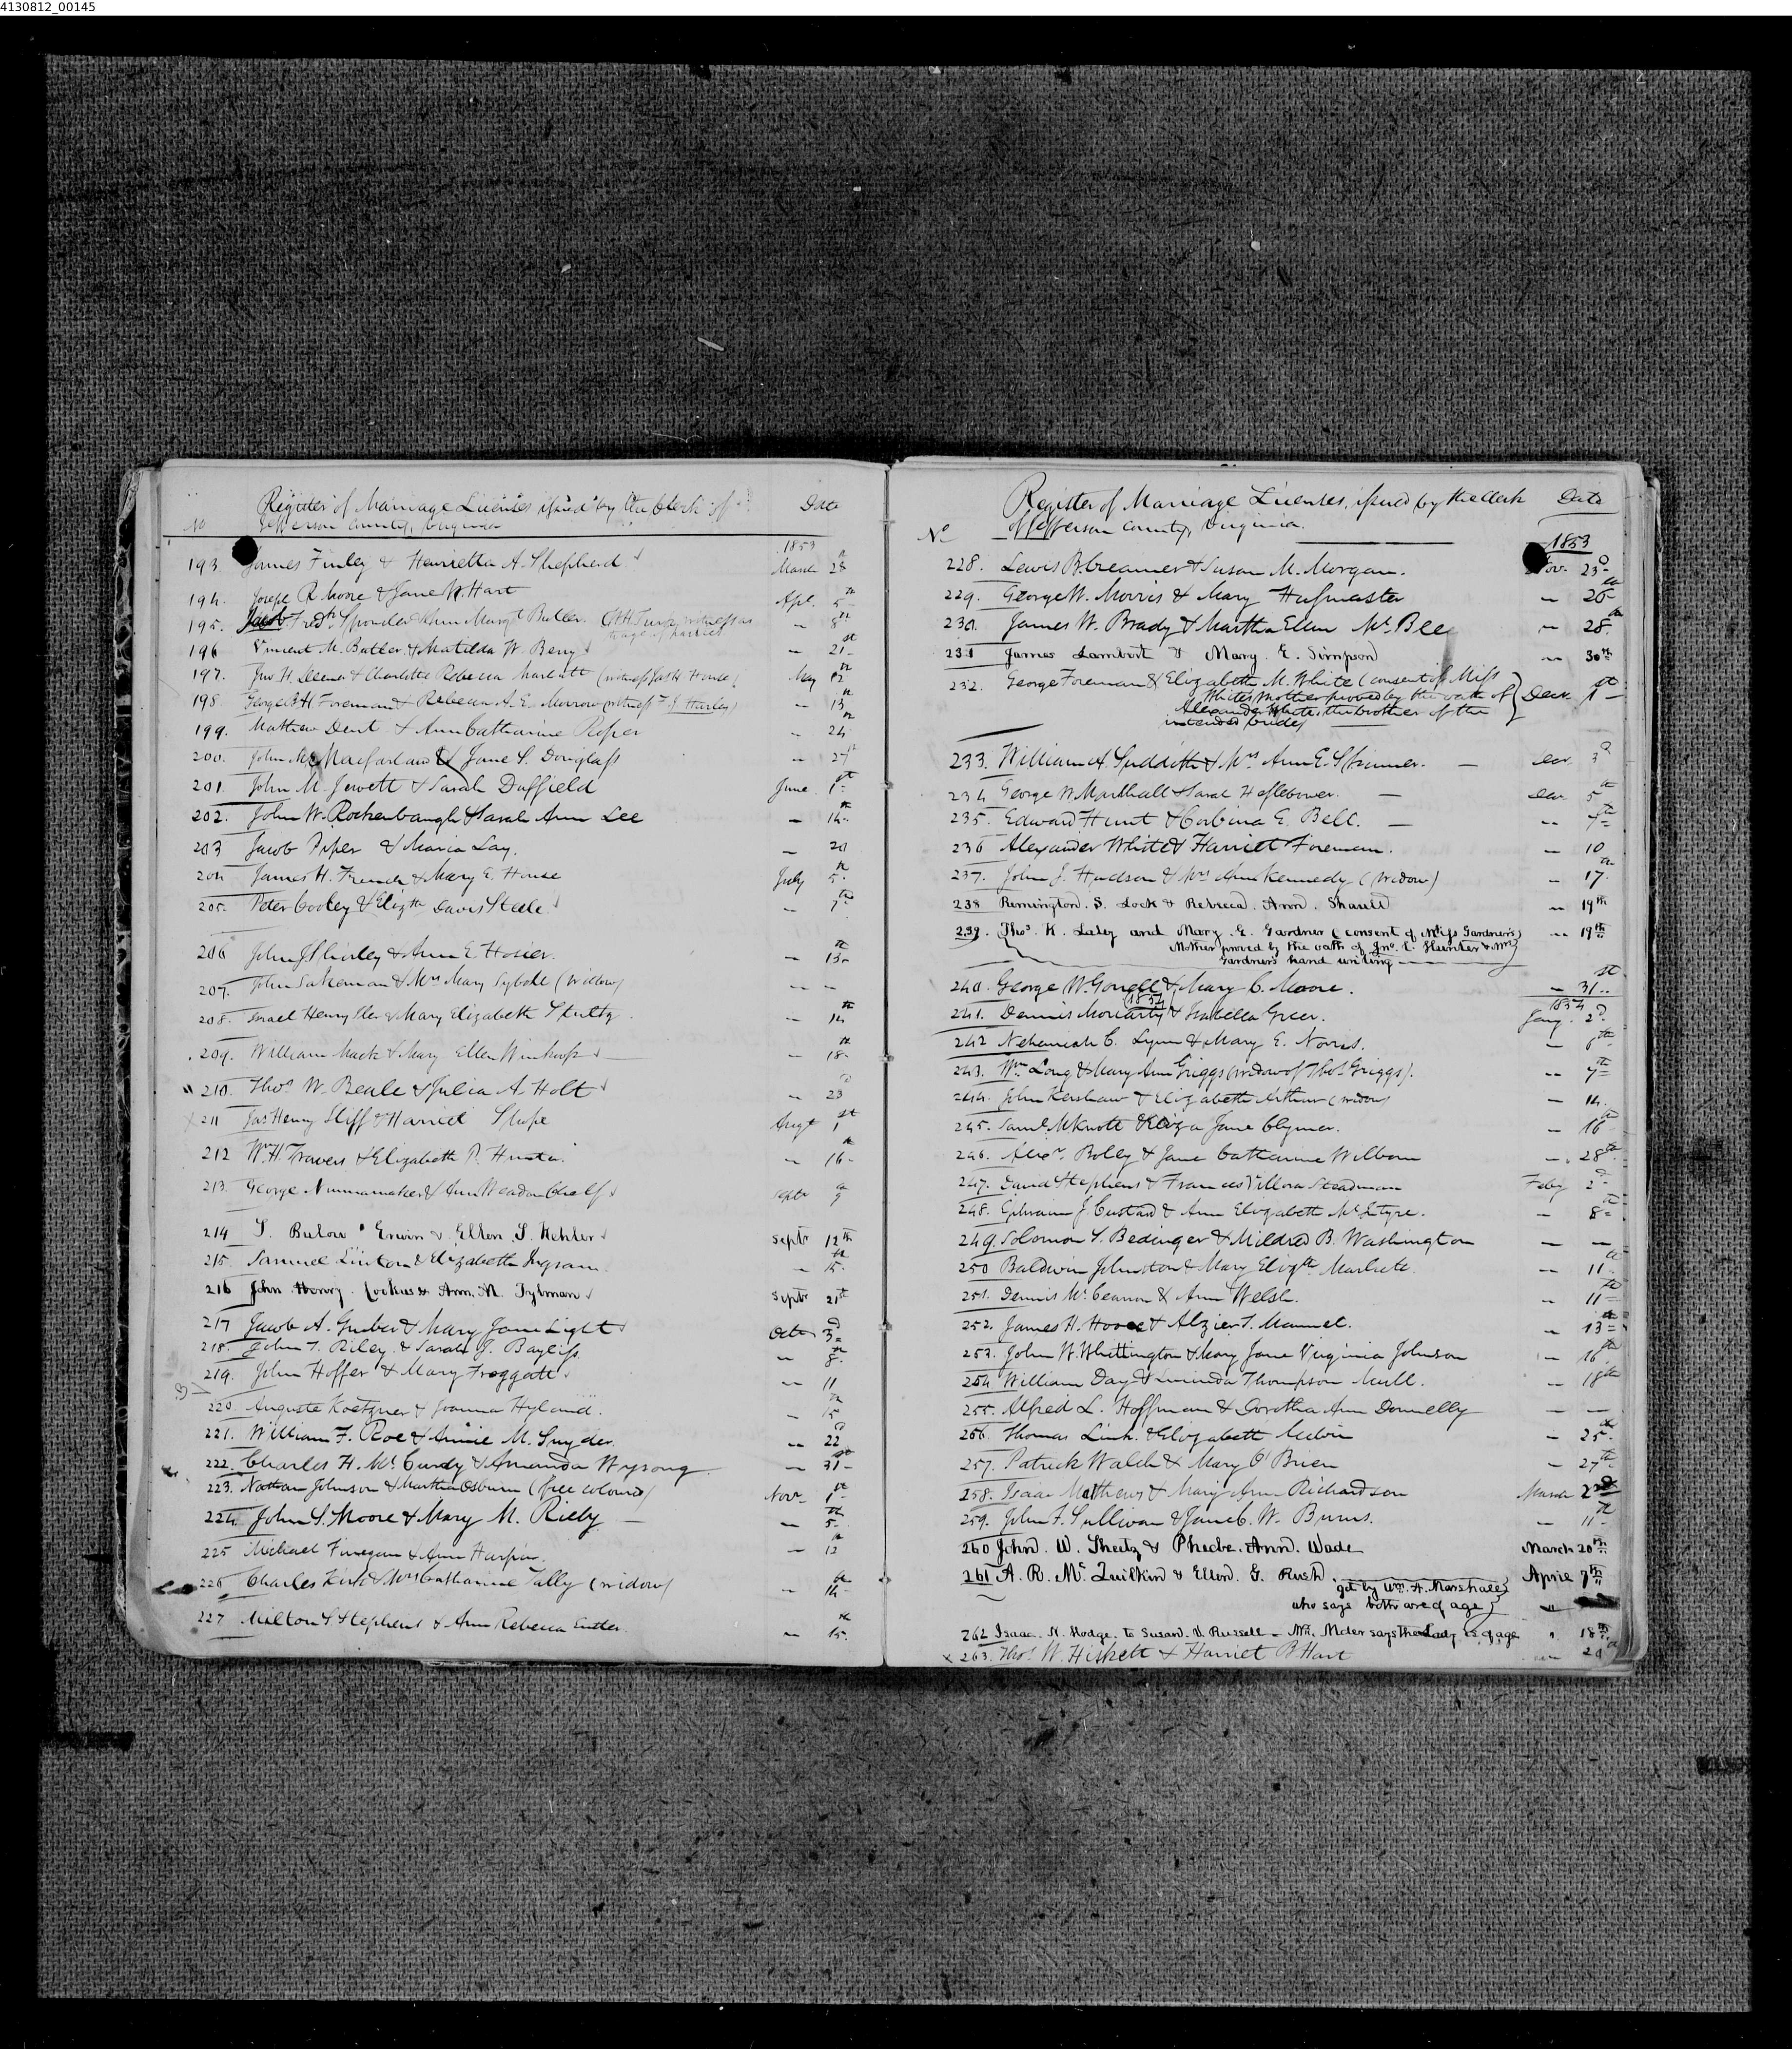 4130812_00145
Register of Marriage Licenses issued by the Clerk of
Jefferson County, Virginia
No
Date
1853
193. James Finley & Henrietta A. Shepherd March 28
194. Joseph R. Moore & Jane W. Hart Apl. 5th
195. Jacob Fredk. & Ann Margt. Butler. witness as – 8th
to age of parties
196 Vincent M. Butler & Matilda W. Berry – 21st
197. Jno H. & Charlotte Rebecca Marlatt (witness House) May 12th
198 George H. Foreman & Rebecca A. E. Morrow (witness T. J. Harley) – 13th
199. Mathew Dent & Ann Catharine Roper – 24th
200. John Macfarland & Jane S. Douglass – 27th
201. John M. Jewett & Sarah Duffield June 1st
202. John W. Rockenbaugh & Sarah Ann Lee – 14th
203 Jacob Piper & Maria Lay. – 20
204 James H. French & Mary E. House July 5th
205. Peter Cooley & Elizth. Davis Steele – 7th
206 John J. Shirley & Ann E. Hosier. – 13th
207. John Sakeman & Mrs Mary Sybole (widow) – –
208. Israel Henry & Mary Elizabeth Stultz – 14th
209. William Mack & Mary Ellen Winkoop – 18th
210. Thos. W. Beale & Julia A. Holt – 23d
211 Jas. Henry Stiff & Harriet Shope Augt 1st
212 Wm. H. Travers & Elizabeth P. – 16th
213. George Nunnamaker & Ann Weadon Chalf Septr 9th
214 S. Bulow Erwin & Ellen S. Kehler Septr 12th
215. Samuel Linton & Elizabeth Ingram – 15th
216 John Henry Cookus & Ann M. Tylman Septr 21st
217 Jacob A. Gruber & Mary Jane Light Octr 3d
218. John T. Riley & Sarah J. Bayliss – 8th
219. John Hoffer & Mary Froggatt – 11
220. Auguste Koetzner & Joanna Hyland. – 15th
221. William F. Roe & Annie M. Snyder. – 22d
222. Charles H. McCurdy & Amanda Wysong – 31st
223. Nathan Johnson & Martha Osburn (free coloured) Novr 1st
224. John S. Moore & Mary M. Rieby – 5th
225 Michael Finegan & Ann Harper. – 12th
226 Charles Kirk & Mrs Catharine Tally (widow) – 14th
227 Milton S. Stephens & Ann Rebecca Entler. – 15th
Register of Marriage Licenses, issued by the Clerk
of Jefferson County, Virginia.
No
Date
1853
228. Lewis B. Creamer & Susan M. Morgan. Nov. 23d
229. George W. Morris & Mary Hufmaster – 26th
230. James W. Brady & Martha Ellen McBlee – 28th
231 James Lambert & Mary E. Simpson – 30th
232. George Foreman & Elizabeth M. White (consent of Miss
White's mother proved by the oath of Decr 1st
Alexander White, the brother of the
intended bride)
233. William A. Suddith & Mrs Ann E. Skinner. – Decr 3d
234 George W. Marshall & Sarah Heflebower. – Decr 5th
235. Edward Hunt & Corbina E. Bell. – – 7th
236 Alexander White & Harriet Foreman. – 10
237. John J. Hudson & Mrs Ann Kennedy (widow) – 17th
238 Remington. S. Lock & Rebecca. Ann. Shaull – 19th
239. Thos. K. Laley and Mary. E. Gardner (consent of Miss Gardner's – 19th
Mother proved by the oath of Jno. C. Hunter & Mrs
Gardner's hand writing
240. George W. Gorrell & Mary C. Moore. – 31st
1854
1854
241. Dennis Moriarty & Isabella Greer. Jany. 2d
242 Nehemiah C. Lynn & Mary E. Norris. – 6th
243. Wm. Long & Mary Ann Griggs (widow of Thos. Griggs). – 7th
244. John Kershaw & Elizabeth Arthur (widow) – 14.
245. Saml. McKnott & Eliza Jane Clymer. – 16th
246. Alexr. Boley & Jane Catharine Wilborn – 28th
247. David Stephens & Frances Villora Steadman Feby 2d
248. Ephraim J. Custard & Ann Elizabeth McIntyre. – 8th
249. Solomon S. Bedinger & Mildred B. Washington – –
250 Baldwin Johnston & Mary Elizth. Marlate. – 11th
251. Dennis McCannon & Ann Welsh. – 11th
252. James H. Hooe & Alzier T. Mammel. – 13th
253. John W. Whittington & Mary Jane Virginia Johnson – 16th
254 William Day & Lucinda Thompson Mull. – 18th
255. Alfred L. Hoffman & Dorothea Ann Donnelly – –
256. Thomas Link & Elizabeth Melvin – 25th
257. Patrick Walch & Mary O'Brien – 27th
258. Isaac Matthews & Mary Ann Richardson March 2nd
259. John F. Sullivan & Jane C. W. Burns. – 11th
260 John. W. Sheetz & Phoebe. Ann. Wade March 20th
261 A. R. McQuilkin & Ellen. G. Rush. April 7th
got by Wm. A. Marshall
who says both are of age
262 Isaac. N. Hodge. to Susan. V. Russell – Wm. Moler says the Lady is of age " 18th
263. Thos. W. Hiskett & Harriet B. Hart – 20